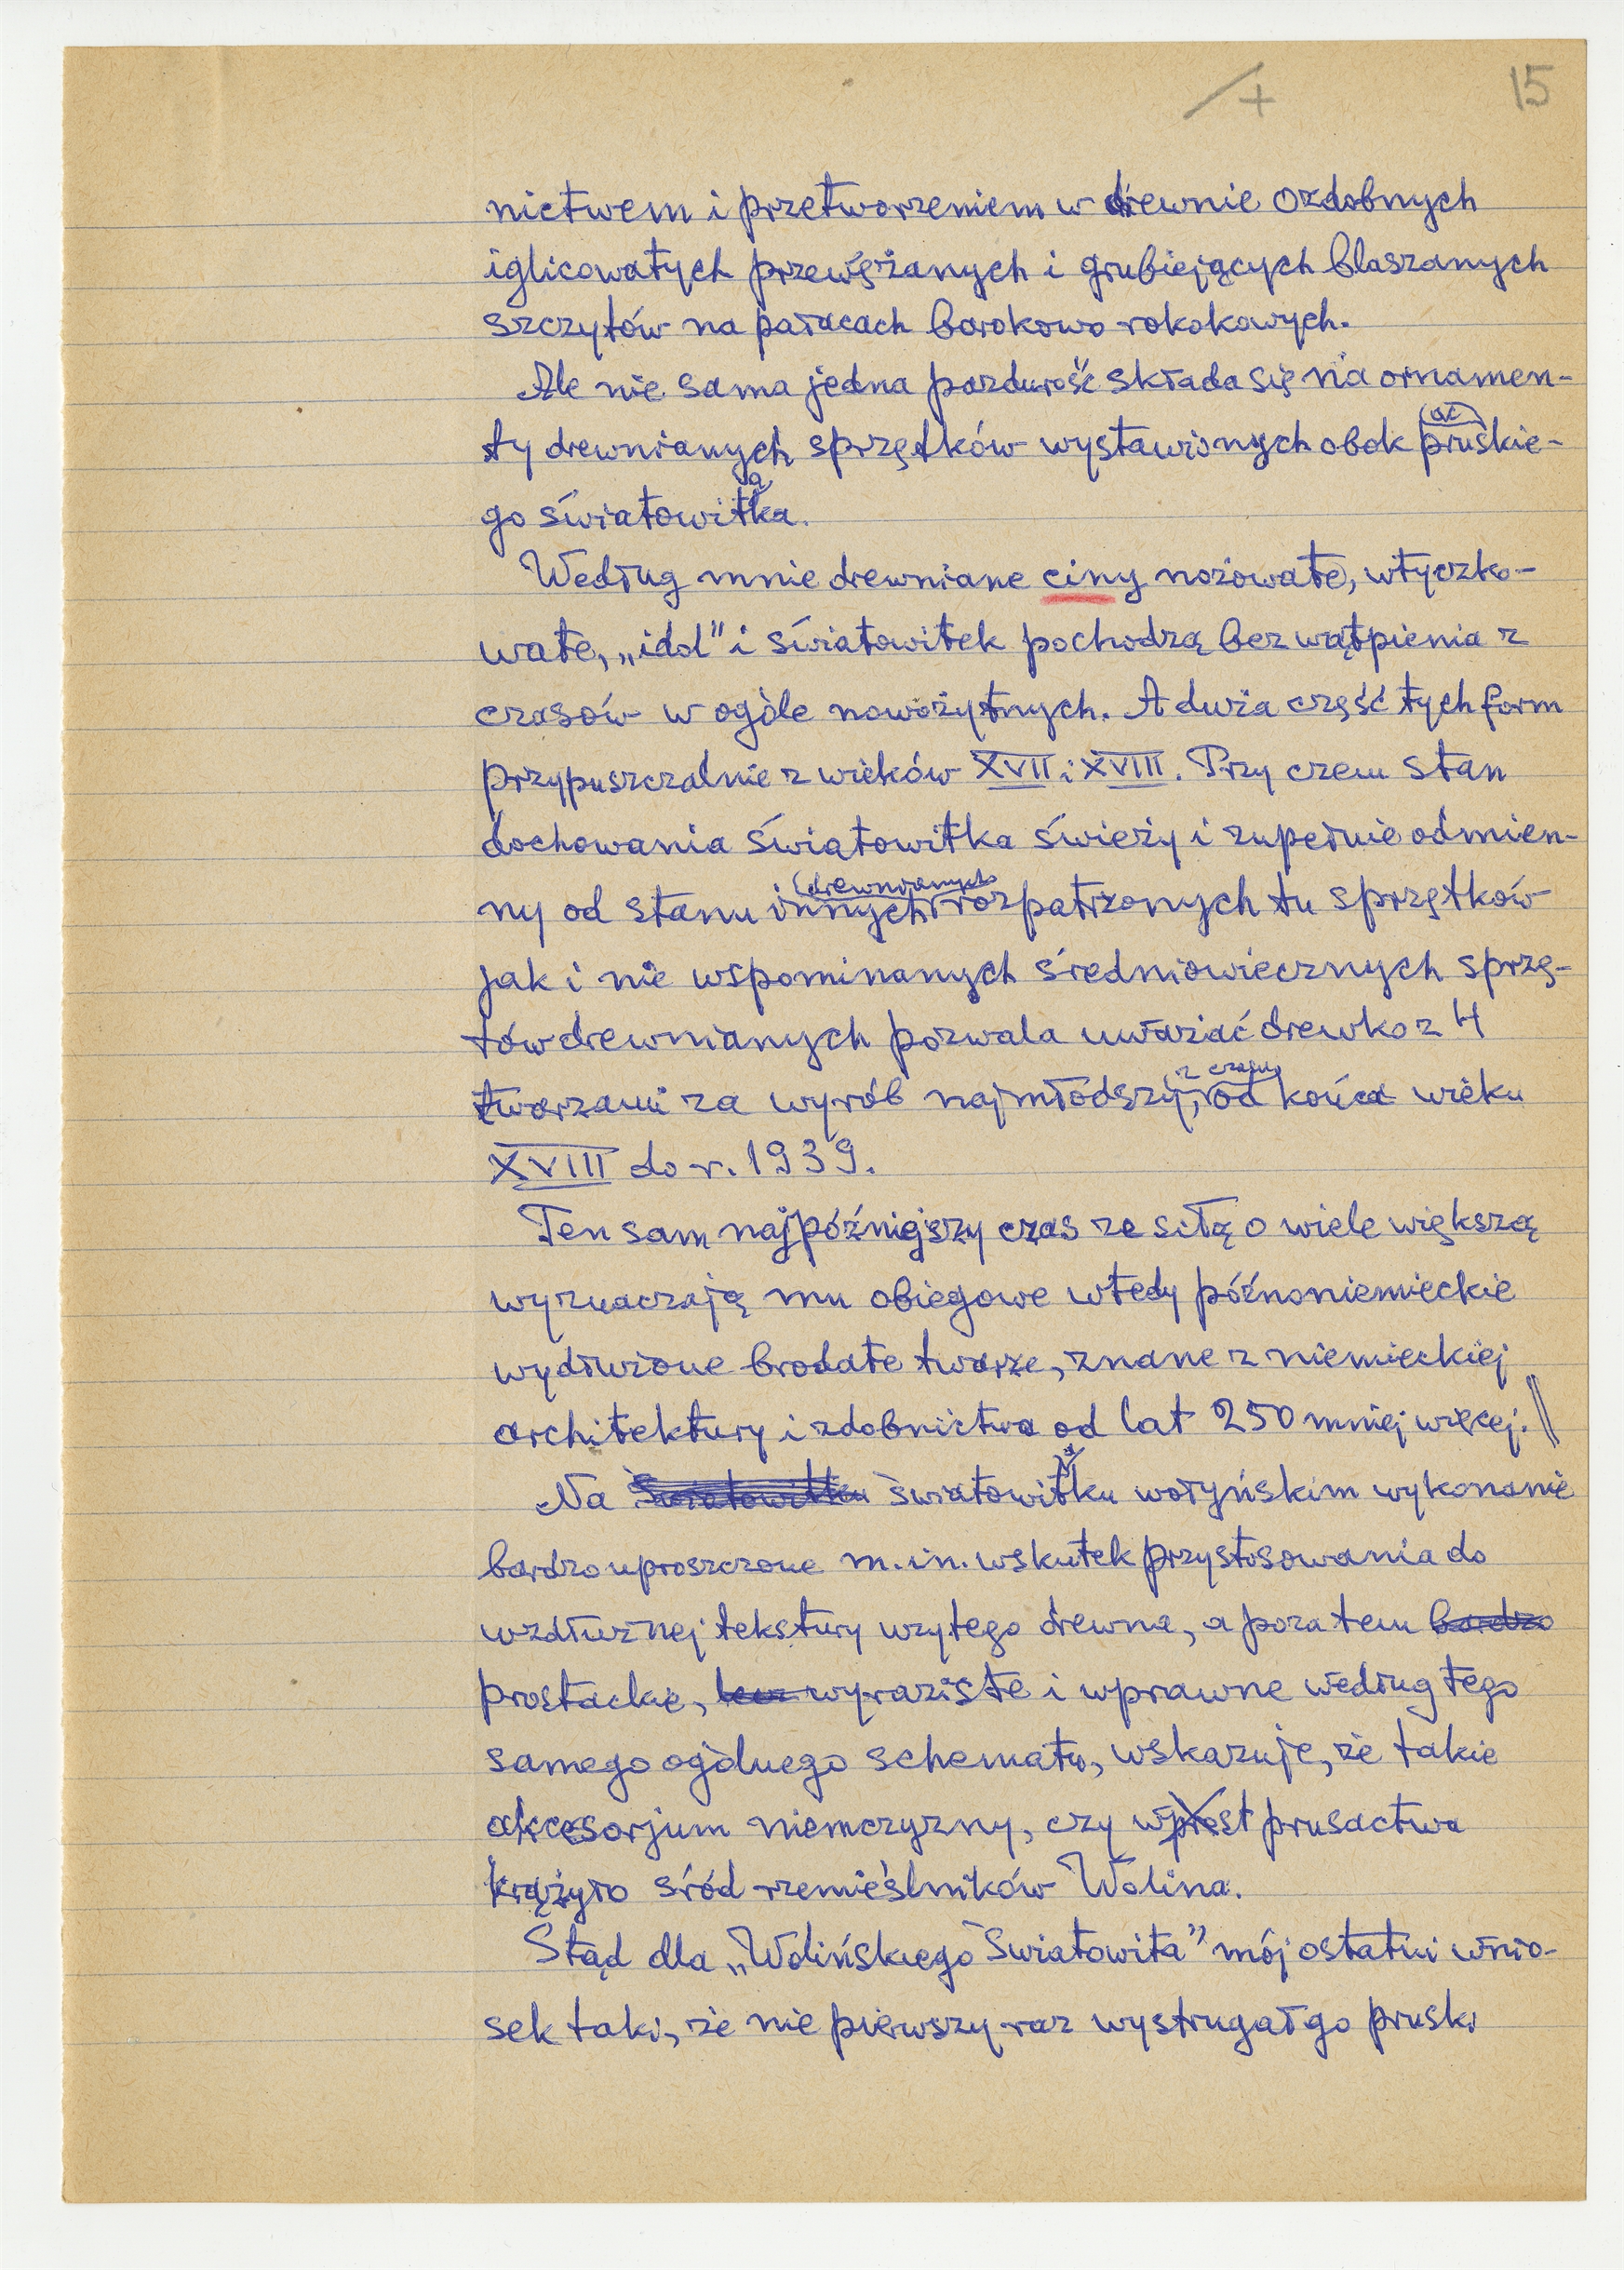 15
nictwem i przetworzeniem w drewnie ozdobnych
iglicowatych przewężanych i grubiejących blaszanych
szczytów na pałacach barokowo-rokokowych.
Ale nie sama jedna pazdurość składa się na ornamen-
(ać)
ty drewnianych sprzętków wystawionych obok pruskie-
go światowitka.
Według mnie drewniane ciny nożowate, wtyczko-
wate, „idol” i światowitek pochodzą bez wątpienia z
czasów w ogóle nowożytnych. A duża część tych form
przypuszczalnie z wieków XVII i XVIII. Przy czem stan
dochowania światowitka świeży i zupełnie odmien-
(drewnianych
ny od stanu innych rozpatrzonych tu sprzętków
jak i nie wspominanych średniowiecznych sprzę-
tów drewnianych pozwala uważać drewko z 4
z czasu
twarzami za wyrób najmłodszy, od końca wieku
XVIII do r. 1939.
Ten sam najpóźniejszy czas ze siłą o wiele większą
wyznaczają mu obiegowe wtedy późnoniemieckie
wydłużone brodate twarze, znane z niemieckiej
architektury i zdobnictwa od lat 250 mniej więcej. ||
Na Światowitku światowitku wołyńskim wykonanie
bardzo uproszczone m.in. wskutek przystosowania do
wzdłużnej tekstury użytego drewna, a poza tem bardzo
prostackie, lecz wyraziste i wprawne według tego
samego ogólnego schematu, wskazuje, że takie
akcesorjum niemczyzny, czy wprost prusactwa
krążyło śród rzemieślników Wolina.
Stąd dla „Wolińskiego Światowita” mój ostatni wnio-
sek taki, że nie pierwszy raz wystrugał go pruski